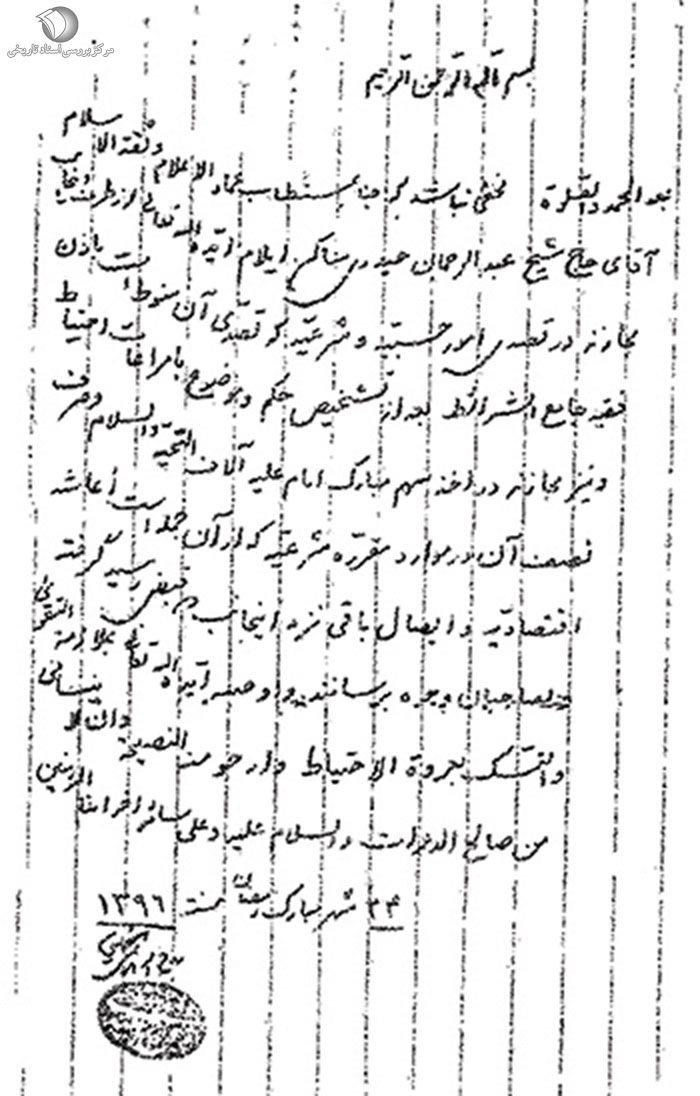 مرکز بررسی اسناد تاریخی
بسم الله الرحمن الرحیم
بعد الحمد والصلوة مخفی نباشد که جناب مستطاب عماد الاعلام وثقة الاسلام
آقای حاج شیخ عبدالرحمان حیدری ساکن ایلام ایده الله تعالی از طرف اینجانب
مجازند در تصدی امور حسبیه و شرعیه که تصدی آن منوط است باذن
فقیه جامع الشرائط بعد از تشخیص حکم و موضوع با مراعات احتیاط
و نیز مجازند در اخذ سهم مبارک امام علیه آلاف التحیة والسلام و صرف
نصف آن در موارد مقرره شرعیه که از آن جمله است اعاشه
اقتصادیه و ایصال باقی نزد اینجانب و قبض رسید گرفته
بصاحبان وجوه برسانند و اوصیه ایده الله تعالی بملازمة التقوی
والتمسک بعروة الاحتیاط وارجو منه النصیحة وان لا ینسانی
من صالح الدعوات والسلام علیه وعلی سائر اخواننا المؤمنین
۲۴ شهر مبارک رمضان سنه ۱۳۹۶